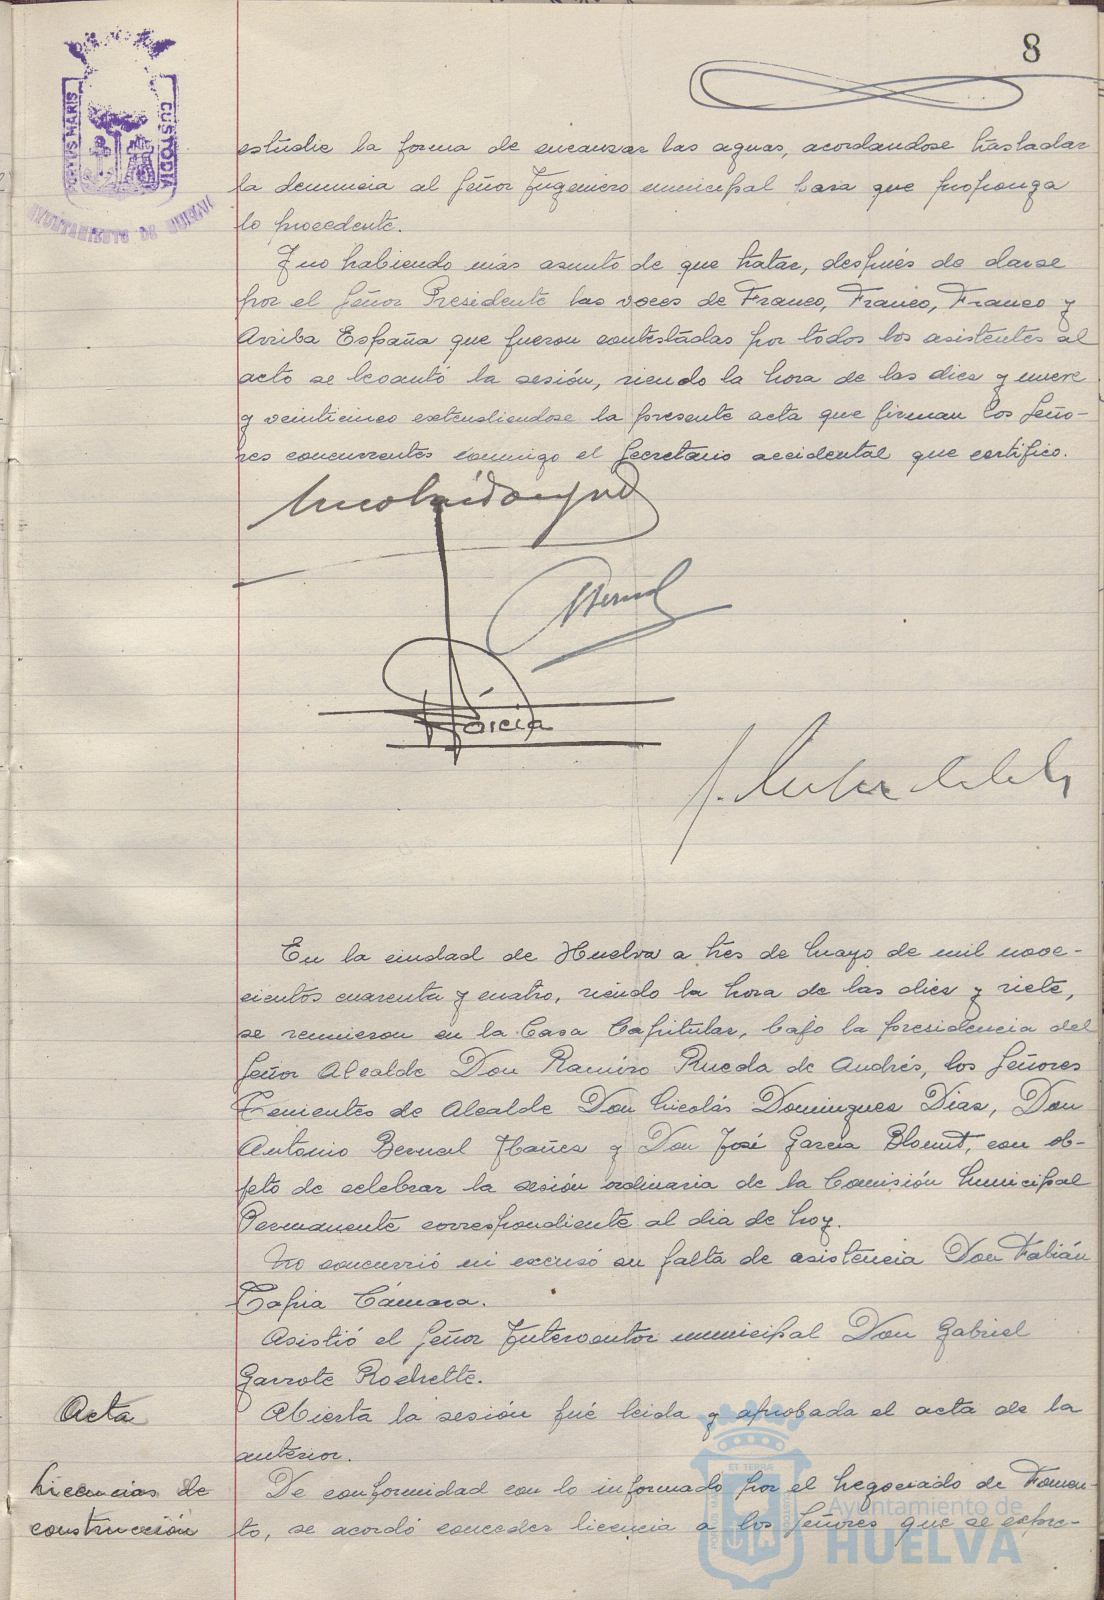 8
PORTUS MARIS
CUSTODIA
AYUNTAMIENTO DE HUELVA
estudie la forma de encauzar las aguas, acordandose trasladar
la denuncia al Señor Ingeniero municipal para que proponga
lo procedente.
Y no habiendo más asunto de que tratar, después de darse
por el Señor Presidente las voces de Franco, Franco, Franco y
Arriba España que fueron contestadas por todos los asistentes al
acto se levantó la sesión, siendo la hora de las diez y nueve
y veinticinco extendiendose la presente acta que firman los Seño-
res concurrentes conmigo el Secretario accidental que certifico.
Bernal
García
En la ciudad de Huelva a tres de Mayo de mil nove-
cientos cuarenta y cuatro, siendo la hora de las diez y siete,
se reunieron en la Casa Capitular, bajo la presidencia del
Señor Alcalde Don Ramiro Rueda de Andrés, los Señores
Tenientes de Alcalde Don Nicolás Dominguez Diaz, Don
Antonio Bernal Ibañez y Don José García Blount, con ob-
jeto de celebrar la sesión ordinaria de la Comisión Municipal
Permanente correspondiente al dia de hoy.
No concurrió ni excusó su falta de asistencia Don Fabián
Tapia Cámara.
Asistió el Señor Interventor municipal Don Gabriel
Garrote Rochette.
Acta
Abierta la sesión fué leida y aprobada el acta de la
anterior.
Licencias de
De conformidad con lo informado por el Negociado de Fomen-
construcción
to, se acordó conceder licencia a los Señores que se expre-
Ayuntamiento de
HUELVA